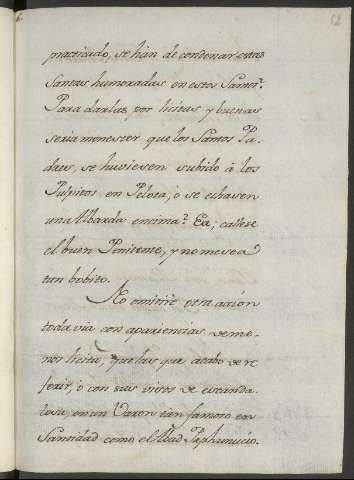 52
practicado, se hán de condenar estas
Santas humoradas en estos Santos?
Para darlas por licitas y buenas
seria menester que los Santos Pa-
dres, se huviesen subido á los
Pulpitos en Pelota, ó se echasen
una Albarda encima? Ea; callese
el buen Penitente, y no me sea
tan bobito.
No omitiré otra accion
toda via con apariencias de me-
nos licita, que las que acabo de re
ferir, ó con sus visos de escanda-
losa, en un Varon tan famoso en
Santidad como el Abad Paphunucio.